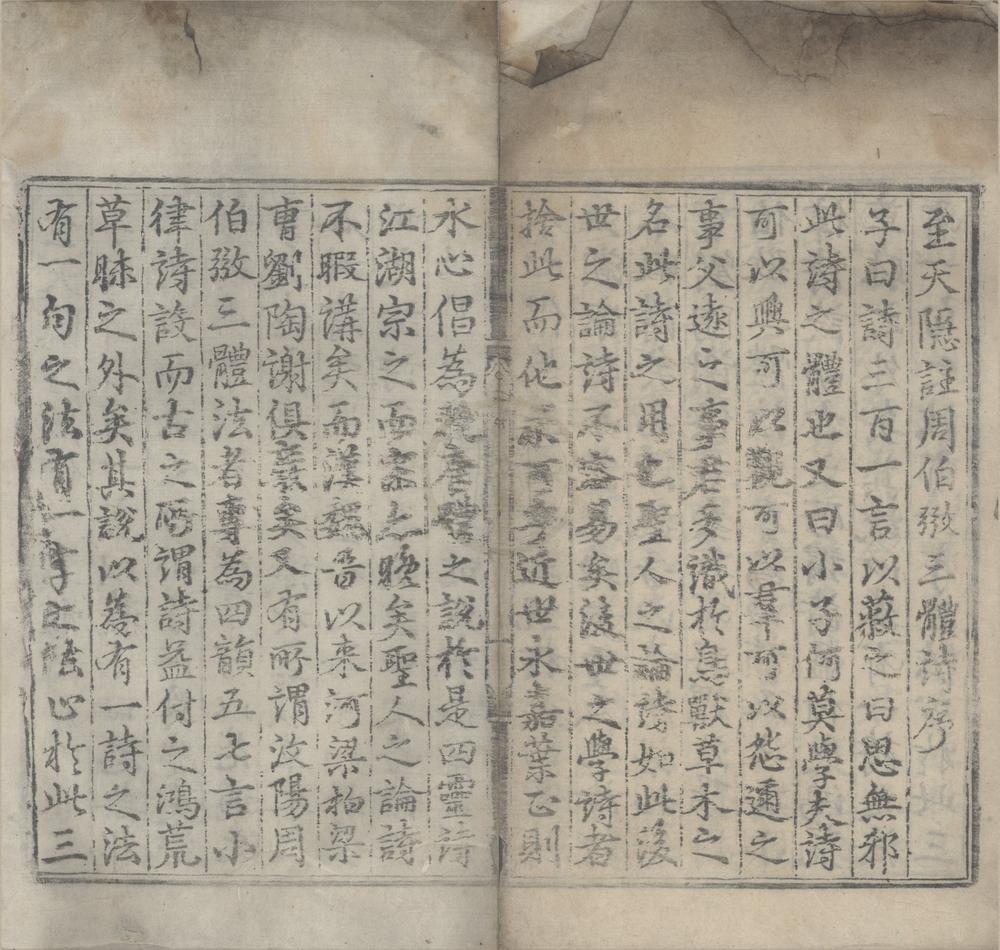 至天隱註周伯弜三體詩序
子曰詩三百一言以蔽之曰思無邪
此詩之體也又曰小子何莫學夫詩
可以興可以觀可以羣可以怨邇之
事父遠之事君多識於鳥獸草木之
名此詩之用也聖人之論詩如此後
世之論詩不容易矣後世之學詩者
捨此而他求可乎近世永嘉葉正則
水心倡為晚唐體之說於是四靈詩
江湖宗之而宗之晚矣聖人之論詩
不暇講矣而漢魏晉以來河梁柏梁
曹劉陶謝俱廢矣又有所謂汶陽周
伯弜三體法者專為四韻五七言小
律詩設而古之所謂詩益付之鴻荒
草昧之外矣其說以為有一詩之法
有一句之法有一字之法止於此三